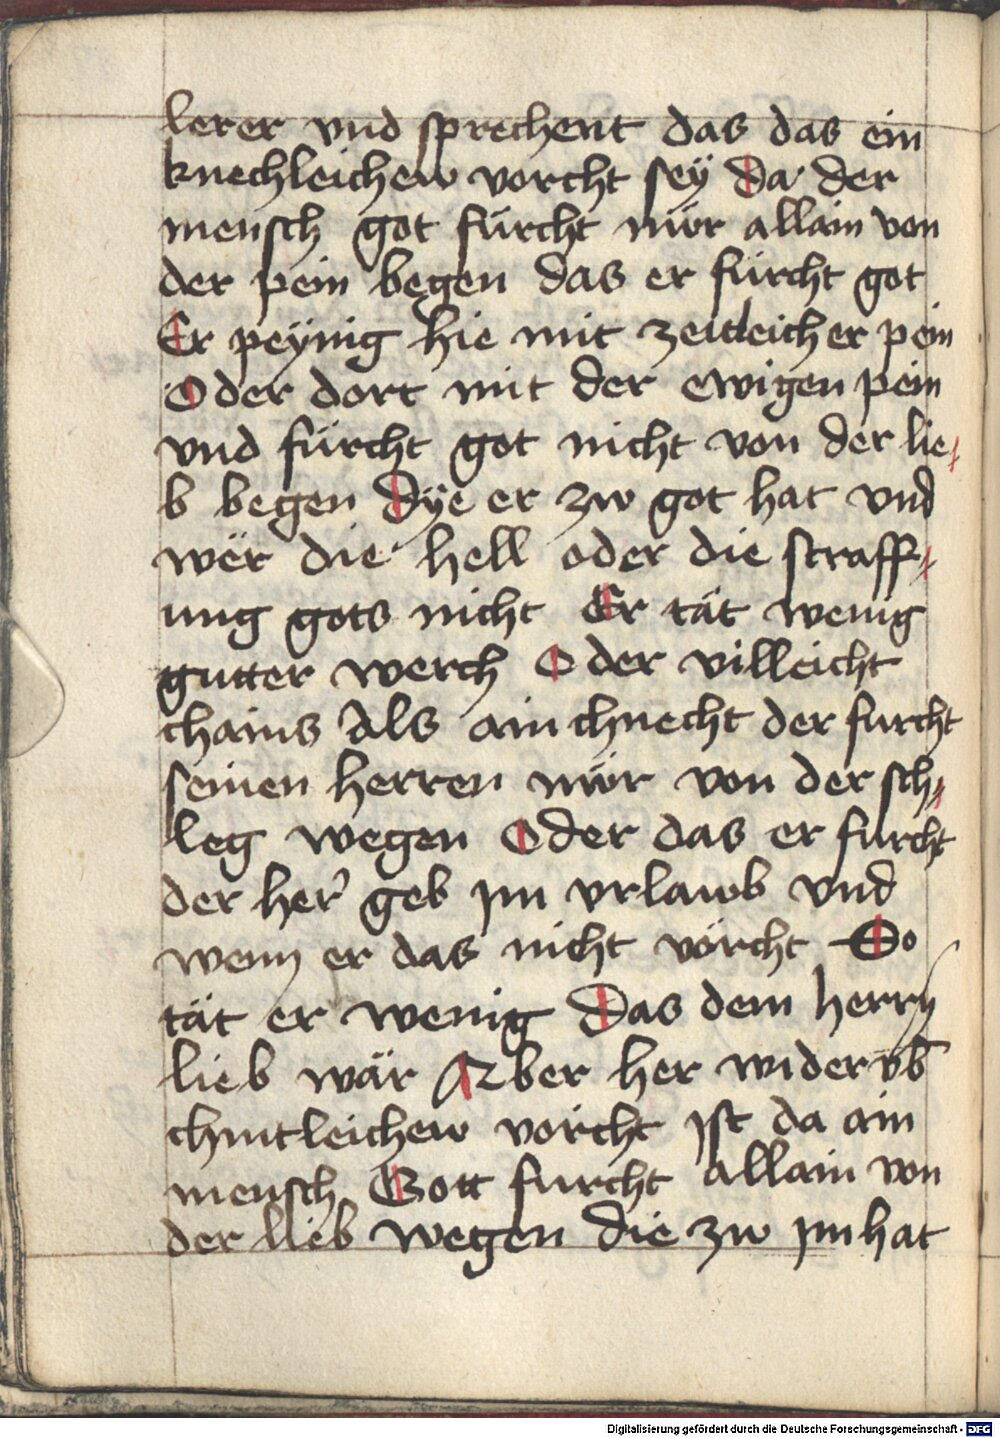 lerer vnd sprechent das das ein
knechleichew vorcht sey Da der
mensch got fürcht nür allain von
der pein begen das er fürcht got
Er peÿnig hie mit zeitleicher pein
Oder dort mit der ewigen pein
vnd fürcht got nicht von der lie⸗
b begen Dÿe er zw got hat vnd
wër die hell oder die straff⸗
ung gots nicht Er tät wenig
gutter werch Oder villeicht
chains Als ain chnecht der furcht
seinen herren nür von der sch⸗
leg wegen Oder das er furcht
der her' geb im vrlawb vnd
wenn er das nicht vörcht So
tät er wenig Das dem herrn
lieb wär Aber her wider vb
chintleichew vörcht ist da ain
mensch Gott furcht allain von
der lieb wegen die zw im hat
Digitalisierung gefördert durch die Deutsche Forschungsgemeinschaft - DFG